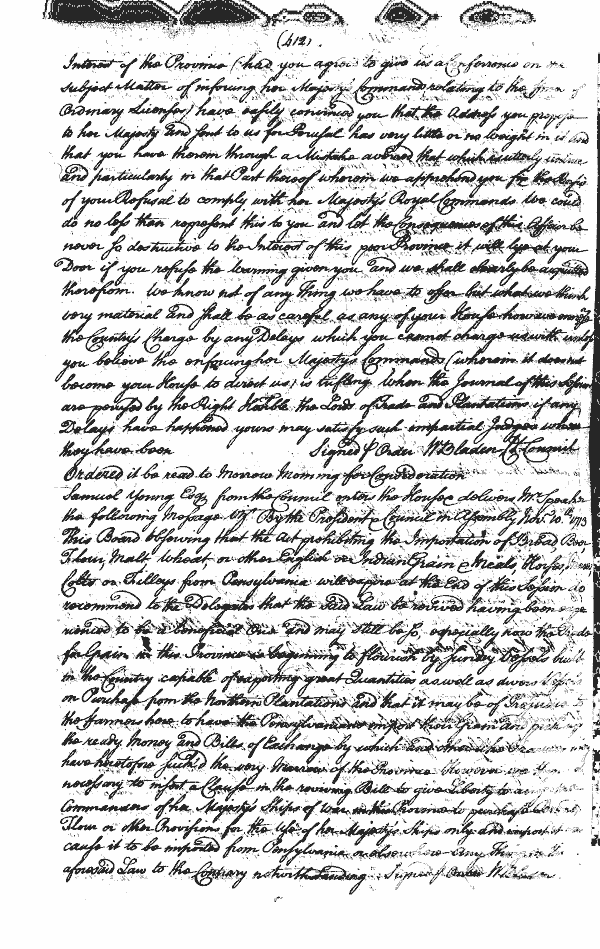 (412).
Interest of the Province (had you agreed to give us a Conference on the
subject Matter of inforcing her Majestys Commands relating to the form of
Ordinary Licenses) have easily convinced you that the Address you propose
to her Majesty and sent to us for Perusal has very little or no weight in it and
that you have therein through a Mistake averred that which is utterly
and particularly in that Part thereof wherein we apprehend you for the Basis
of your Refusal to comply with her Majestys Royal Commands We could
do no less than represent this to you and let the Consequences of this Affair be
never so destructive to the Interest of this poor Province it will lye at your
Door if you refuse the warning given you and we shall clearly be acquitted
therefrom. We know not of any Thing we have to offer but what we think
very material and shall be as careful as any of your House
the Country's Charge by any Delays which you cannot charge us with unless
you believe the enforcing her Majestys Commands (wherein it does not
become your House to direct us) is trifling. When the Journal of this Session
are perused by the Right Honble the Lords of Trade and Plantations if any
Delays have happened yours may satisfy such impartial Judges where
they have been Signed p Order W Bladen Cl Council
Ordered it be read to Morrow Morning for Consideration
Samuel Young Esq. from the Council enters the House & delivers Mr Speaker
the following Message Viz By the President & Council in Assembly Nov. 10th 1713
This Board observing that the Act prohibiting the Importation of Bread Beer
Flour, Malt wheat or other English or Indian Grain & Meals, Horses, Mares
Colts or Filleys from Pensylvania will expire at the End of this Session do
recommend to the Delegates that the said Law be revived having been expe
rienced to be a beneficial One and may still be so, especially now the Trade
for Grain in this Province is beginning to flourish by sundry Vessels built
in the Country capable of exporting great Quantities as well as divers Vessels
on Purchase from the Northern Plantations and that it may be of Prejudice to
the farmers here to have the Pensylvanians import their grain and
the ready Money and Bills of Exchange by which and otherwise
have heretofore suck'd the very Marrow of the Province However we
necessary to insert a Clause in the reviving Bill to give Liberty to any
Commanders of her Majestys Ships of war in this Province to purchase
Flour or other Provisions for the Use of her Majestys Ships only and import or
cause it to be imported from Pensylvania or elsewhere any Thing in the
aforesaid Law to the Contrary notwithstanding Signed p Order W Bladen